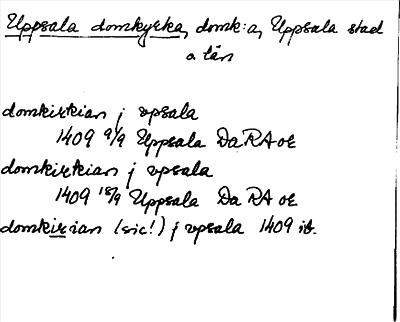 Uppsala domkyrka, domk:a, Uppsala stad
o län
domkirkian j vpsala
1409 9/9 Uppsala Da RA oe
domkirkian j vpsala
1409 18/9 Uppsala Da RA oe
domkircian (sic!) j vpsala 1409 ib.